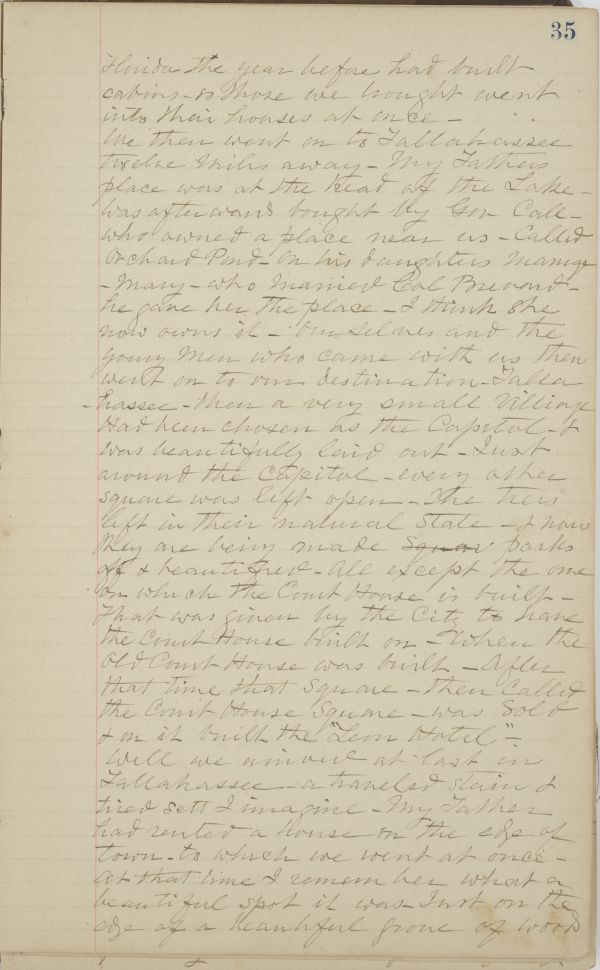 35
Florida the year before had built
cabins - so those we brought went
into their houses at once -
We then went on to Tallahassee
twelve miles away - My Fathers
place was at the head of the Lake -
was afterwards bought by Gov Call -
who owned a place near us - Called
Orchard Pond - On his daughters marriage
- Mary - who married Col Brevard -
he gave her the place - I think she
now owns it - Our selves and the
young men who came with us then
went on to our destination - Talla
hassee - then a very small Village
Had been chosen as the Capitol - &
was beautifully laid out - Just
around the Capitol - every other
square was left open - The trees
left in their natural State - & now
they are being made Squar parks
of & beautified - all except the one
on which the Court House is built -
That was given by the City to have
the Court House built on - When the
Old Court House was built - After
that time that Square - then Called
the Court House Square - was Sold
& on it built the "Leon Hotel" -
Well we arrived at last in
Tallahassee - a traveled Stain &
tired sett I imagine - My Father
had rented a house on the edge of
town - to which we went at once -
At that time I remember what a
beautiful spot it was - Just on the
edge of a beautiful grove of woods